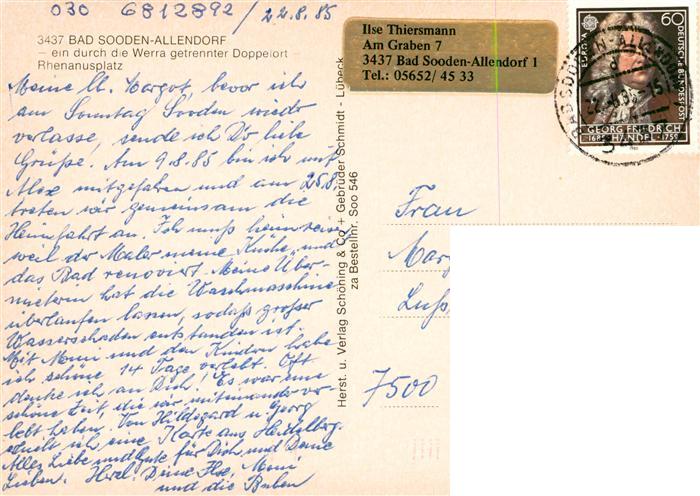 030 6812892 / 22.8.85
3437 BAD SOODEN-ALLENDORF
— ein durch die Werra getrennter Doppelort
Rhenanusplatz
Meine lb. Margot, bevor ich
am Sonntag Sooden wieder
verlasse, sende ich Dir liebe
Grüße. Am 9.8.85 bin ich mit
mitgefahren und am 25.8.
treten wir gemeinsam die
Heimfahrt an. Ich muß heimreisen
weil der Maler meine Küche, und
das Bad renoviert. Meine Über-
mieterin hat die Waschmaschine
überlaufen lassen, sodaß großer
Wasserschaden entstanden ist.
Mit und den Kindern habe
ich schöne 14 Tage verlebt. Oft
denke ich an Dich! Es war eine
schöne Zeit, die wir miteinander ver-
lebt haben. Von Hildegard u. Georg
erhielt ich eine Karte aus Heidelberg.
Alles Liebe und Gute für Dich und Deine
Lieben. Herzl. Deine Ilse,
und die Buben
Herst. u. Verlag Schöning & Co + Gebrüder Schmidt - Lübeck
za Bestellnr. Soo 546
Ilse Thiersmann
Am Graben 7
3437 Bad Sooden-Allendorf 1
Tel.: 05652/ 45 33
EUROPA
60
DEUTSCHE BUNDESPOST
GEORG FRIEDRICH
1685 HÄNDEL 1759
BAD SOODEN-ALLENDORF
Frau
Marg
7500